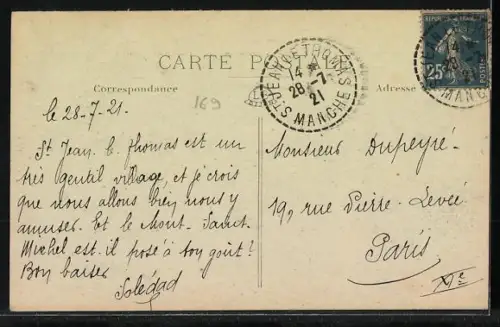 CARTE POSTALE
Correspondance
Adresse
RÉPUBLIQUE FRANÇAISE
25c
ST JEAN LE THOMAS
14 *
28 -7
21
MANCHE
169
le 28-7-21.
St Jean. l. Thomas est un
très gentil village, et je crois
que nous allons bien nous y
amuser. Et le Mont-Saint
Michel est-il posé à ton goût?
Bon baiser
Solédad
Monsieur Dupeyré-
19, rue Pierre-Levée
Paris
XIe